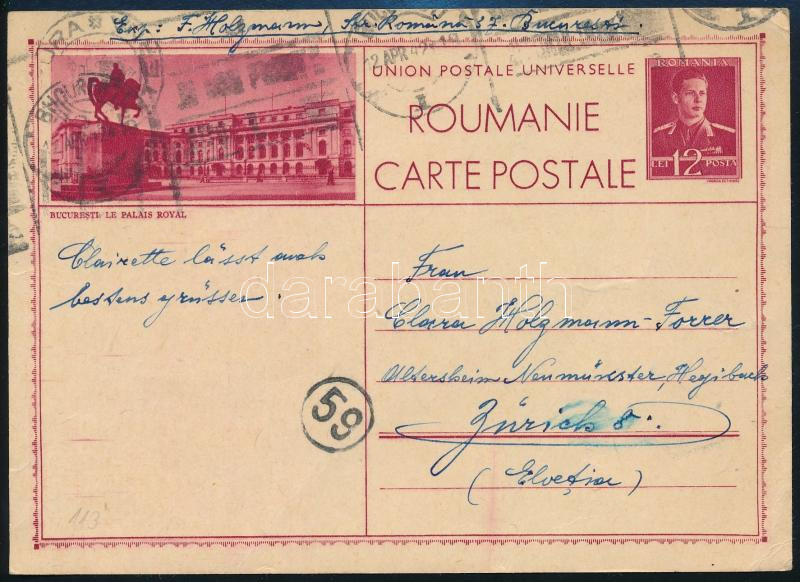 Exp: F. Holzmann, Str. Română 37. București.
UNION POSTALE UNIVERSELLE
ROUMANIE
CARTE POSTALE
ROMANIA
LEI 12 POSTA
BUCUREȘTI: LE PALAIS ROYAL
Clairette lässt auch
bestens grüssen.
Frau
Clara Holzmann-Forrer
Altersheim Neumünster, Hegibach
Zürich 8.
(Elveția)
59
113
darabanth